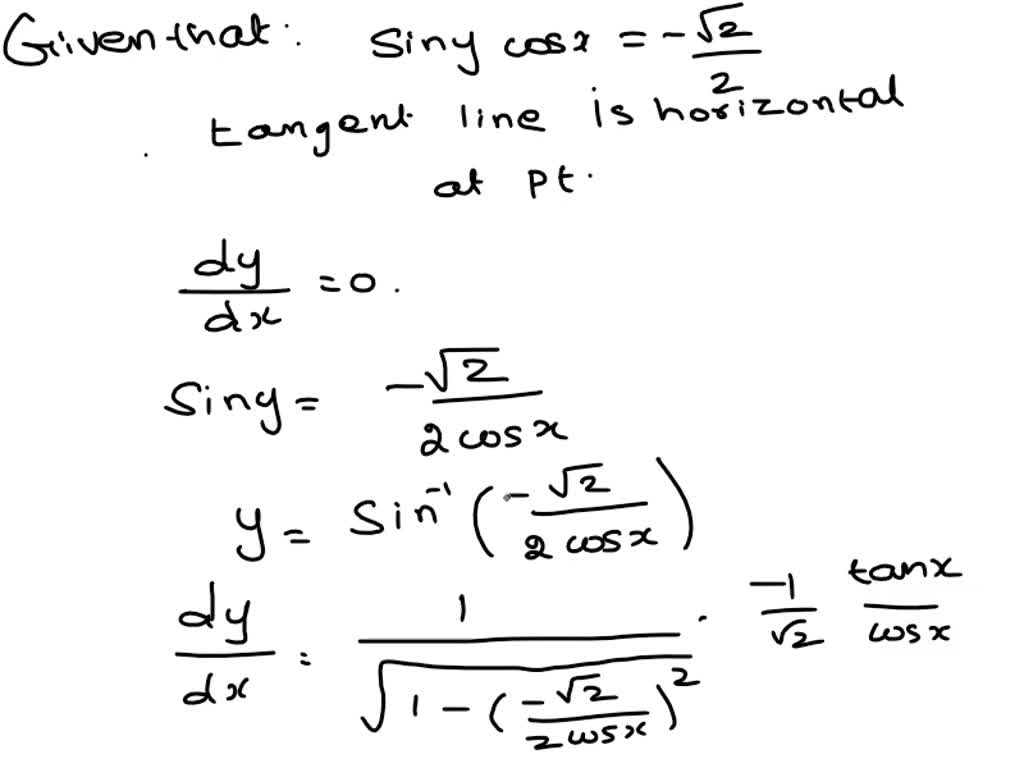 Given that: siny cosx = -√2/2
tangent line is horizontal
at pt.
dy/dx = 0.
Siny = -√2/(2 cosx)
y = Sin⁻¹(-√2/(2 cosx))
dy/dx = 1/√(1-(-√2/(2 cosx))²) · -1/√2 tanx/cosx